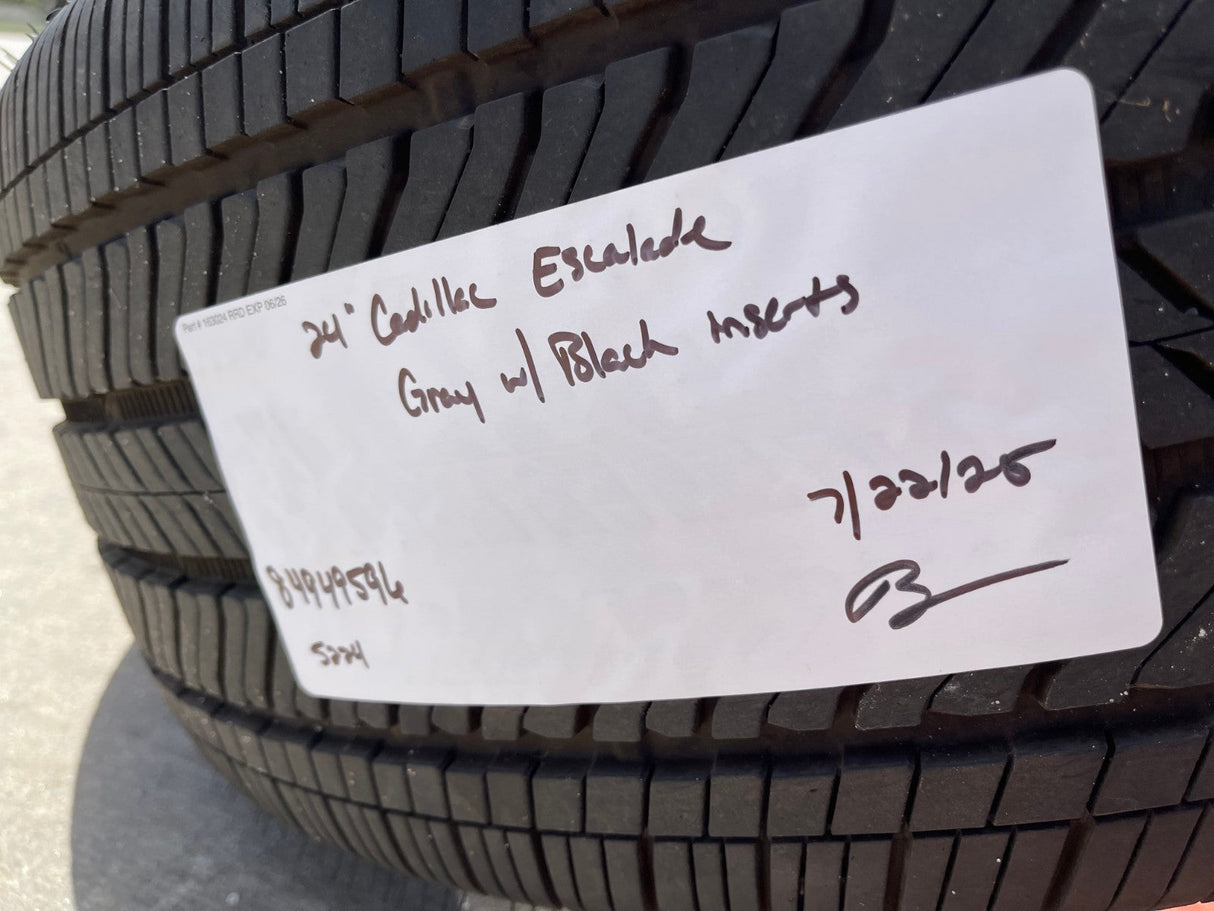 Part # 163024 RRD EXP 06/26
24" Cadillac Escalade
Gray w/ Black Inserts
7/22/25
84949596
5224